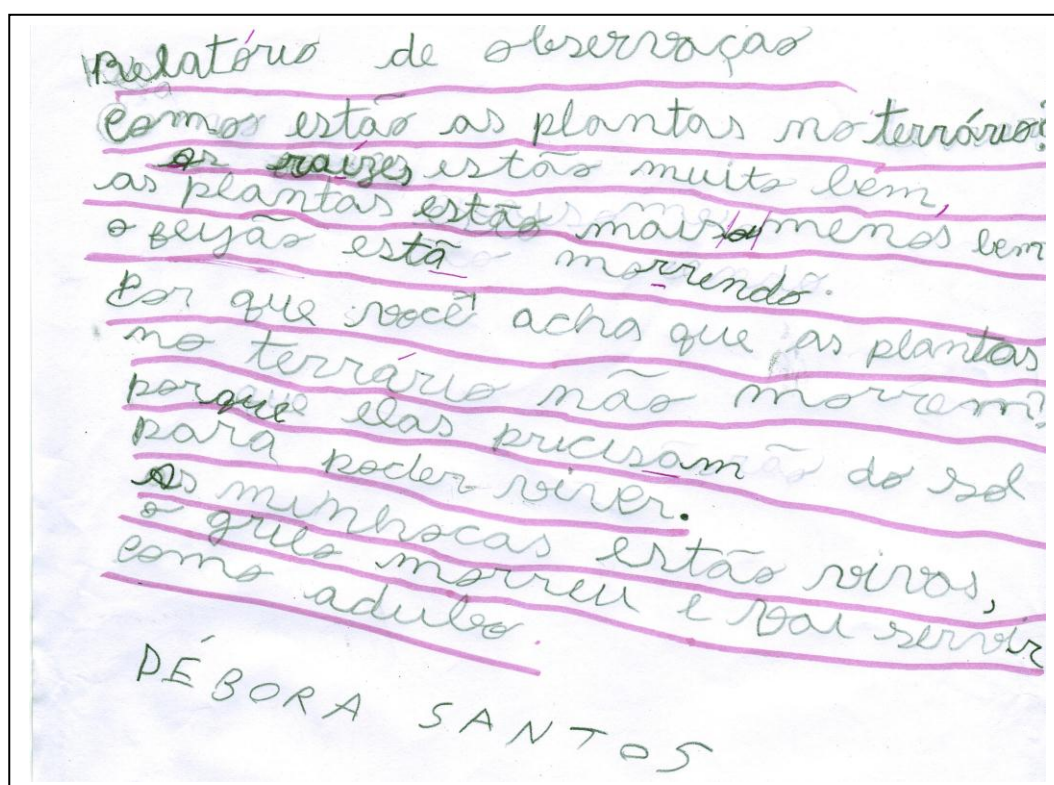 Relatório de observação
Como estão as plantas no terrário?
as raízes estão muito bem,
as plantas estão mais ou menos bem
o feijão está morrendo.
Por que você acha que as plantas
no terrário não morrem?
porque elas pricisam do sol
para poder viver.
As minhocas estão vivas,
o grilo morreu e vai servir
como adubo.
DÉBORA SANTOS